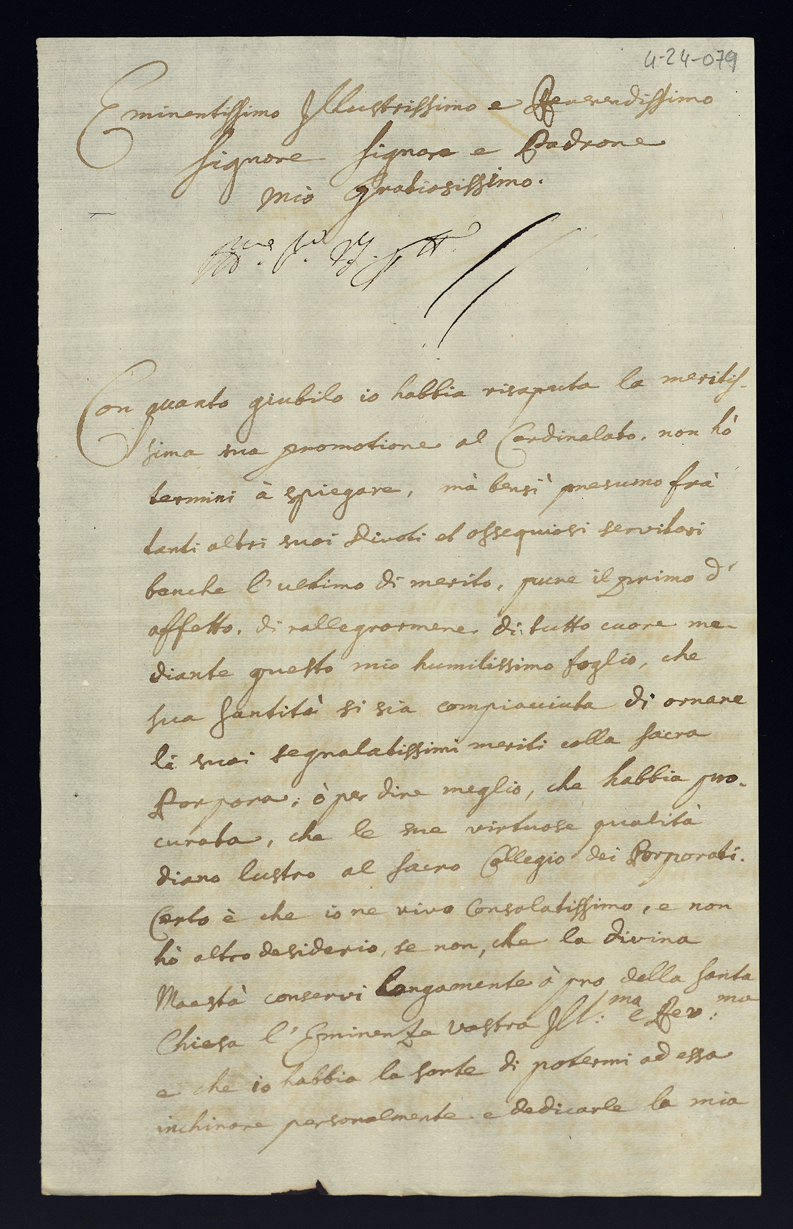 4-24-079
Eminentissimo Illustrissimo e Reverendissimo
Signore Signore e Padrone
mio Gratiosissimo.
Con quanto giubilo io habbia risaputa la meritis-
sima sua promotione al Cardinalato, non hò
termini à spiegare, mà bensi presumo frà
tanti altri suoi divoti et ossequiosi servitori
benche l'ultimo di merito, pure il primo d'
affetto, di rallegrarmene di tutto cuore me-
diante questo mio humilissimo foglio, che
sua Santità si sia compiacciuta di ornare
li suoi segnalatissimi meriti colla sacra
Porpora; ò per dire meglio, che habbia pro-
curata, che le sue virtuose qualità
diano lustro al sacro Collegio dei Porporati.
Certo è che io ne vivo consolatissimo, e non
hò altro desiderio, se non, che la divina
Maestà conservi longamente à pro della santa
Chiesa l'Eminenza vostra Ill:ma e Rev:ma
e che io habbia la sorte di potermi ad essa
inchinare personalmente e dedicarle la mia